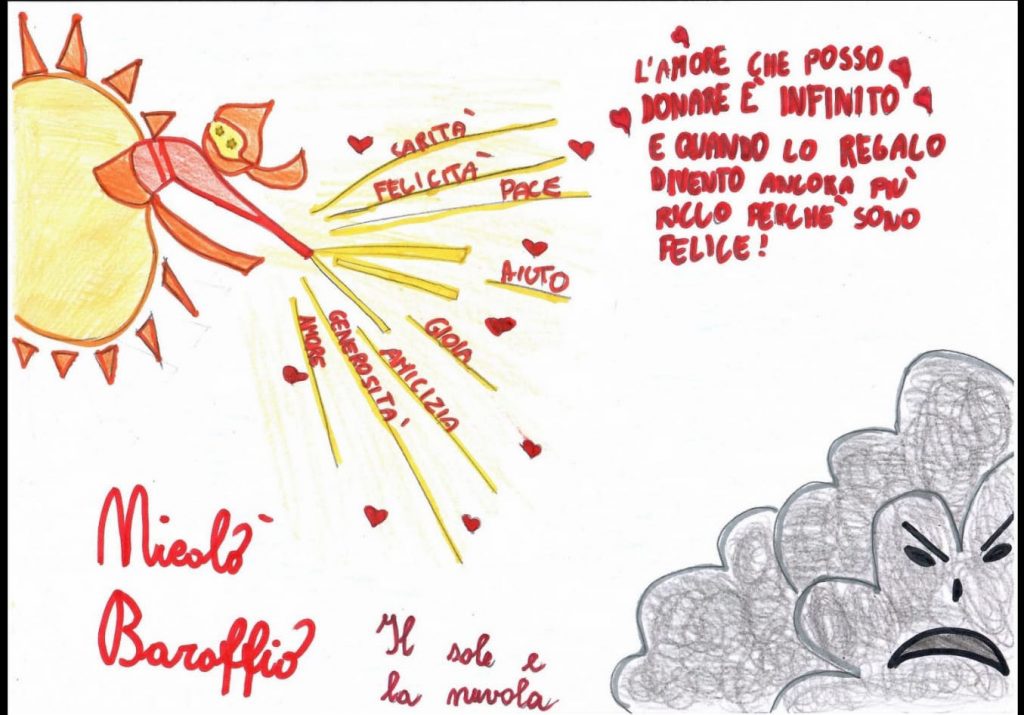 L'AMORE CHE POSSO
DONARE È INFINITO
E QUANDO LO REGALO
DIVENTO ANCORA PIÙ
RICCO PERCHÈ SONO
FELICE!
CARITÀ
FELICITÀ
PACE
AIUTO
GIOIA
AMICIZIA
GENEROSITA'
AMORE
Nicolò
Baroffio
Il sole e
la nuvola